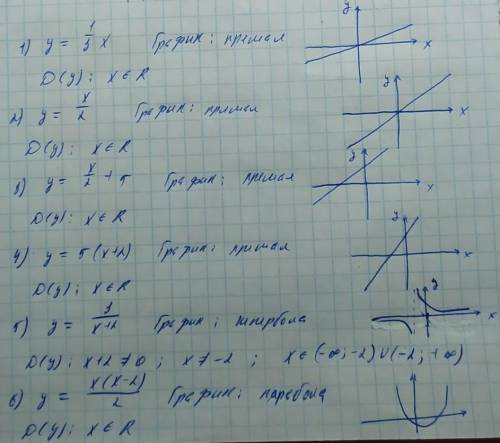 1) y = 1/3 x График: прямая y x
D(y): x ∈ R
2) y = x/2 График: прямая y x
D(y): x ∈ R
3) y = x/2 + 5 График: прямая y x
D(y): x ∈ R
4) y = 5(x+2) График: прямая x
D(y): x ∈ R
5) y = 3/(x+2) График: гипербола y x
D(y): x+2 ≠ 0; x ≠ -2; x ∈ (-∞; -2) ∪ (-2; +∞)
6) y = x(x-2)/2 График: парабола
D(y): x ∈ R